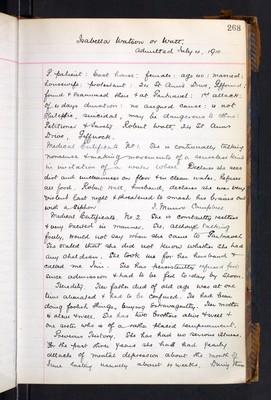 268
Isabella Watson or Watt.
Admitted July 11, 1910
P. patient: East house: female: age 40: married:
housewife: protestant: 20 St Anns Drive, Giffnock:
found & examined there & at Parkhead: 1st attack:
of 10 days duration: no assigned cause: is not
epileptic, suicidal, may be dangerous to others:
Petitioner & Surety Robert Watt, 20 St Anns
Drive, Giffnock.
Medical Certificate No 1: She is continually talking
nonsense & making movements of a senseless kind
in imitation of a motor wheel. Declares she sees
dirt and uncleanness on floor & in clean water. Refuses
all food. Robert Watt, husband, declares she was very
violent last night & threatened to smash his brains out
with a
Medical Certificate No. 2. She is constantly restless
& very excited in manner. She, although talking
freely, would not say when she came to
She stated that she did not know whether she had
any children. She took me for her husband &
called me Jim. She has persistently refused food
since admission & had to be fed to-day by
Heredity. Her father died of old age was at one
time alienated & had to be confused. He had been
doing foolish things, buying extravagantly. Her mother
is alive & well. She has two brothers alive & well &
one sister who is of a rather placid temperament.
Previous History. She has had no serious illness.
For the past three years she has had yearly
attacks of mental depression about the month of
June lasting usually about 6 weeks. During these